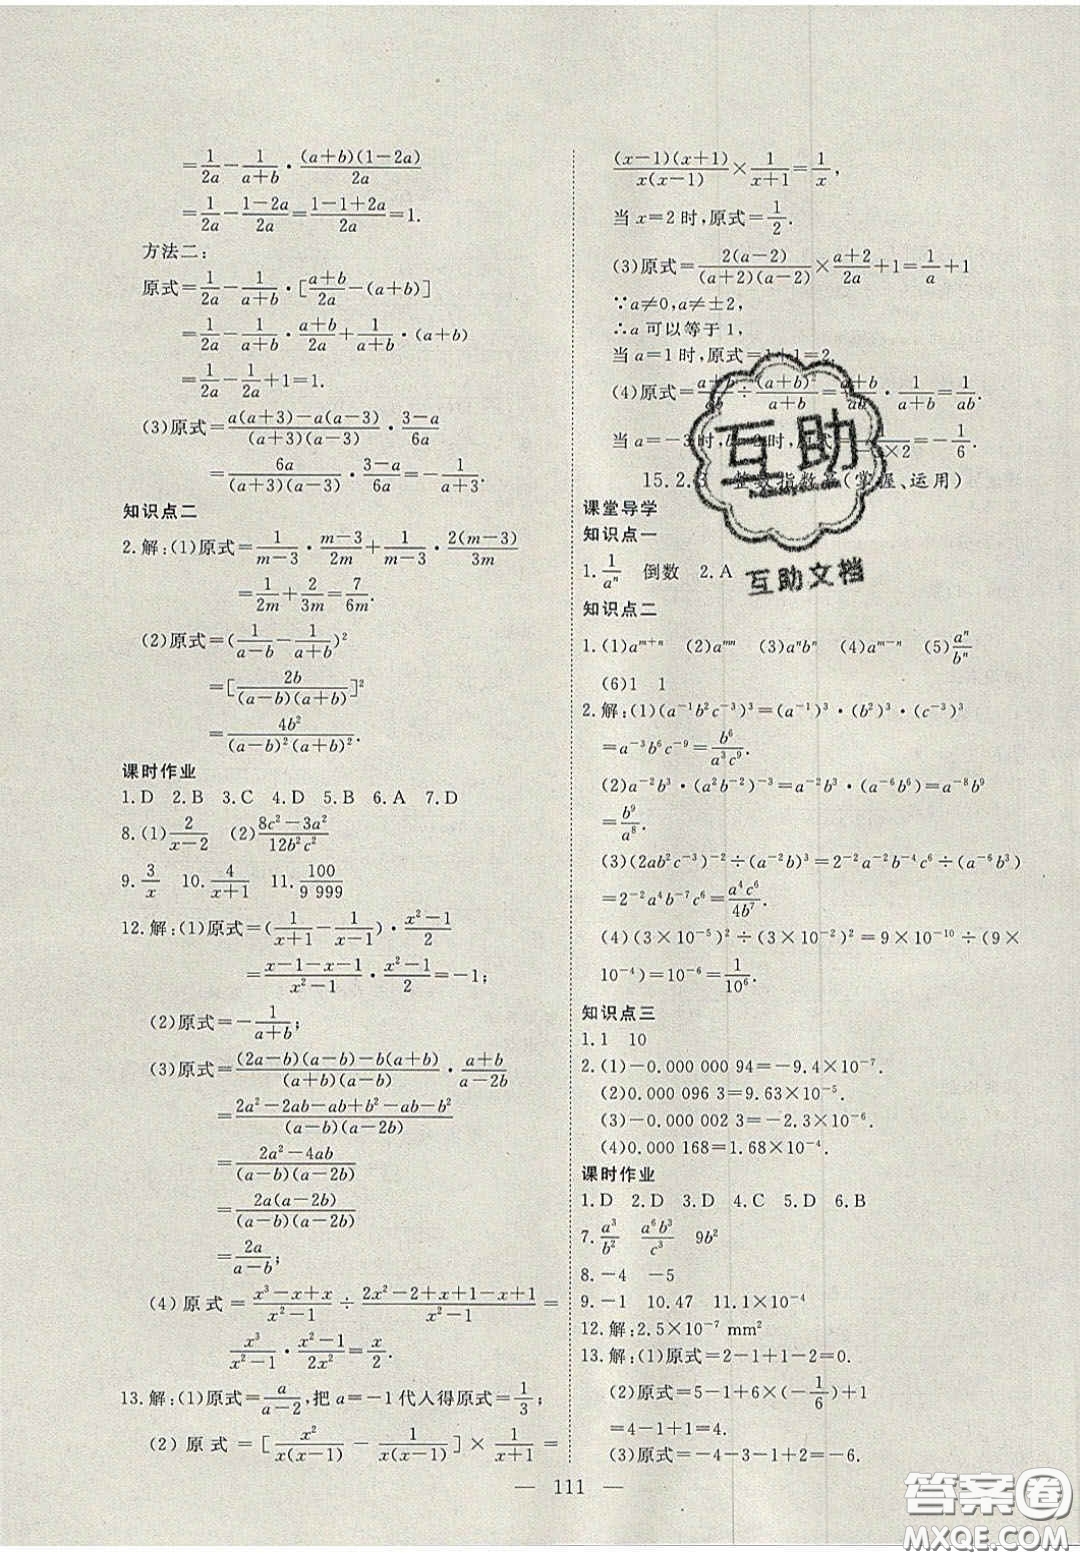 =1/(2a)-1/(a+b)·(a+b)(1-2a)/(2a)
=1/(2a)-(1-2a)/(2a)=(1-1+2a)/(2a)=1.
方法二:
原式=1/(2a)-1/(a+b)·[(a+b)/(2a)-(a+b)]
=1/(2a)-1/(a+b)·(a+b)/(2a)+1/(a+b)·(a+b)
=1/(2a)-1/(2a)+1=1.
(3)原式=(a(a+3)-a(a-3))/((a+3)(a-3))·(3-a)/(6a)
=6a/((a+3)(a-3))·(3-a)/(6a)=-1/(a+3).
知识点二
2.解:(1)原式=1/(m-3)·(m-3)/(2m)+1/(m-3)·2(m-3)/(3m)
=1/(2m)+2/(3m)=7/(6m).
(2)原式=(1/(a-b)-1/(a+b))²
=[2b/((a-b)(a+b))]²
=4b²/((a-b)²(a+b)²).
课时作业
1.D 2.B 3.C 4.D 5.B 6.A 7.D
8.(1)2/(x-2) (2)(8c²-3a²)/(12b²c²)
9.3/x 10.4/(x+1) 11.100/9 999
12.解:(1)原式=(1/(x+1)-1/(x-1))·(x²-1)/2
=(x-1-x-1)/(x²-1)·(x²-1)/2=-1;
(2)原式=-1/(a+b);
(3)原式=((2a-b)(a-b)-b(a+b))/((a-b)(a+b))·(a+b)/(a-2b)
=(2a²-2ab-ab+b²-ab-b²)/((a-b)(a-2b))
=(2a²-4ab)/((a-b)(a-2b))
=2a(a-2b)/((a-b)(a-2b))
=2a/(a-b);
(4)原式=(x³-x+x)/(x²-1)÷(2x²-2+x+1-x+1)/(x²-1)=
x³/(x²-1)·(x²-1)/(2x²)=x/2.
13.解:(1)原式=a/(a-2),把a=-1代人得原式=1/3;
(2)原式=[x²/(x(x-1))-1/(x(x-1))]×1/(x+1)=
(x-1)(x+1)/(x(x-1))×1/(x+1)=1/x,
当x=2时,原式=1/2.
(3)原式=2(a-2)/((a+2)(a-2))×(a+2)/(2a)+1=1/a+1
∵a≠0,a≠±2,
∴a可以等于1,
当a=1时,原式=1+1=2.
(4)原式=÷(a+b)²/(a+b)=(a+b)/(ab)·1/(a+b)=1/(ab).
当a=-3时,×2=-1/6.
15.2.3 整数指数幂(掌握、运用)
课堂导学
知识点一
1.1/aⁿ 倒数 2.A
知识点二
1.(1)a^(m+n) (2)a^(mn) (3)aⁿbⁿ (4)a^(m-n) (5)aⁿ/bⁿ
(6)1 1
2.解:(1)(a⁻¹b²c⁻³)³=(a⁻¹)³·(b²)³·(c⁻³)³
=a⁻³b⁶c⁻⁹=b⁶/(a³c⁹).
(2)a⁻²b³·(a²b⁻²)⁻³=a⁻²b³·(a⁻⁶b⁶)=a⁻⁸b⁹
=b⁹/a⁸.
(3)(2ab²c⁻³)⁻²÷(a⁻²b)³=2⁻²a⁻²b⁻⁴c⁶÷(a⁻⁶b³)
=2⁻²a⁴b⁻⁷c⁶=a⁴c⁶/(4b⁷).
(4)(3×10⁻⁵)²÷(3×10⁻²)²=9×10⁻¹⁰÷(9×
10⁻⁴)=10⁻⁶=1/10⁶.
知识点三
1.1 10
2.(1)-0.000 000 94=-9.4×10⁻⁷.
(2)0.000 096 3=9.63×10⁻⁵.
(3)-0.000 002 3=-2.3×10⁻⁶.
(4)0.000 168=1.68×10⁻⁴.
课时作业
1.D 2.D 3.D 4.C 5.D 6.B
7.a³/b² a⁶b³/c³ 9b²
8.-4 -5
9.-1 10.47 11.1×10⁻⁴
12.解:2.5×10⁻⁷ mm²
13.解:(1)原式=2-1+1-2=0.
(2)原式=5-1+6×(-1/6)+1
=4-1+1=4.
(3)原式=-4-3-1+2=-6.
— 111 —
互助
互助文档
答案圈
MXQE.COM